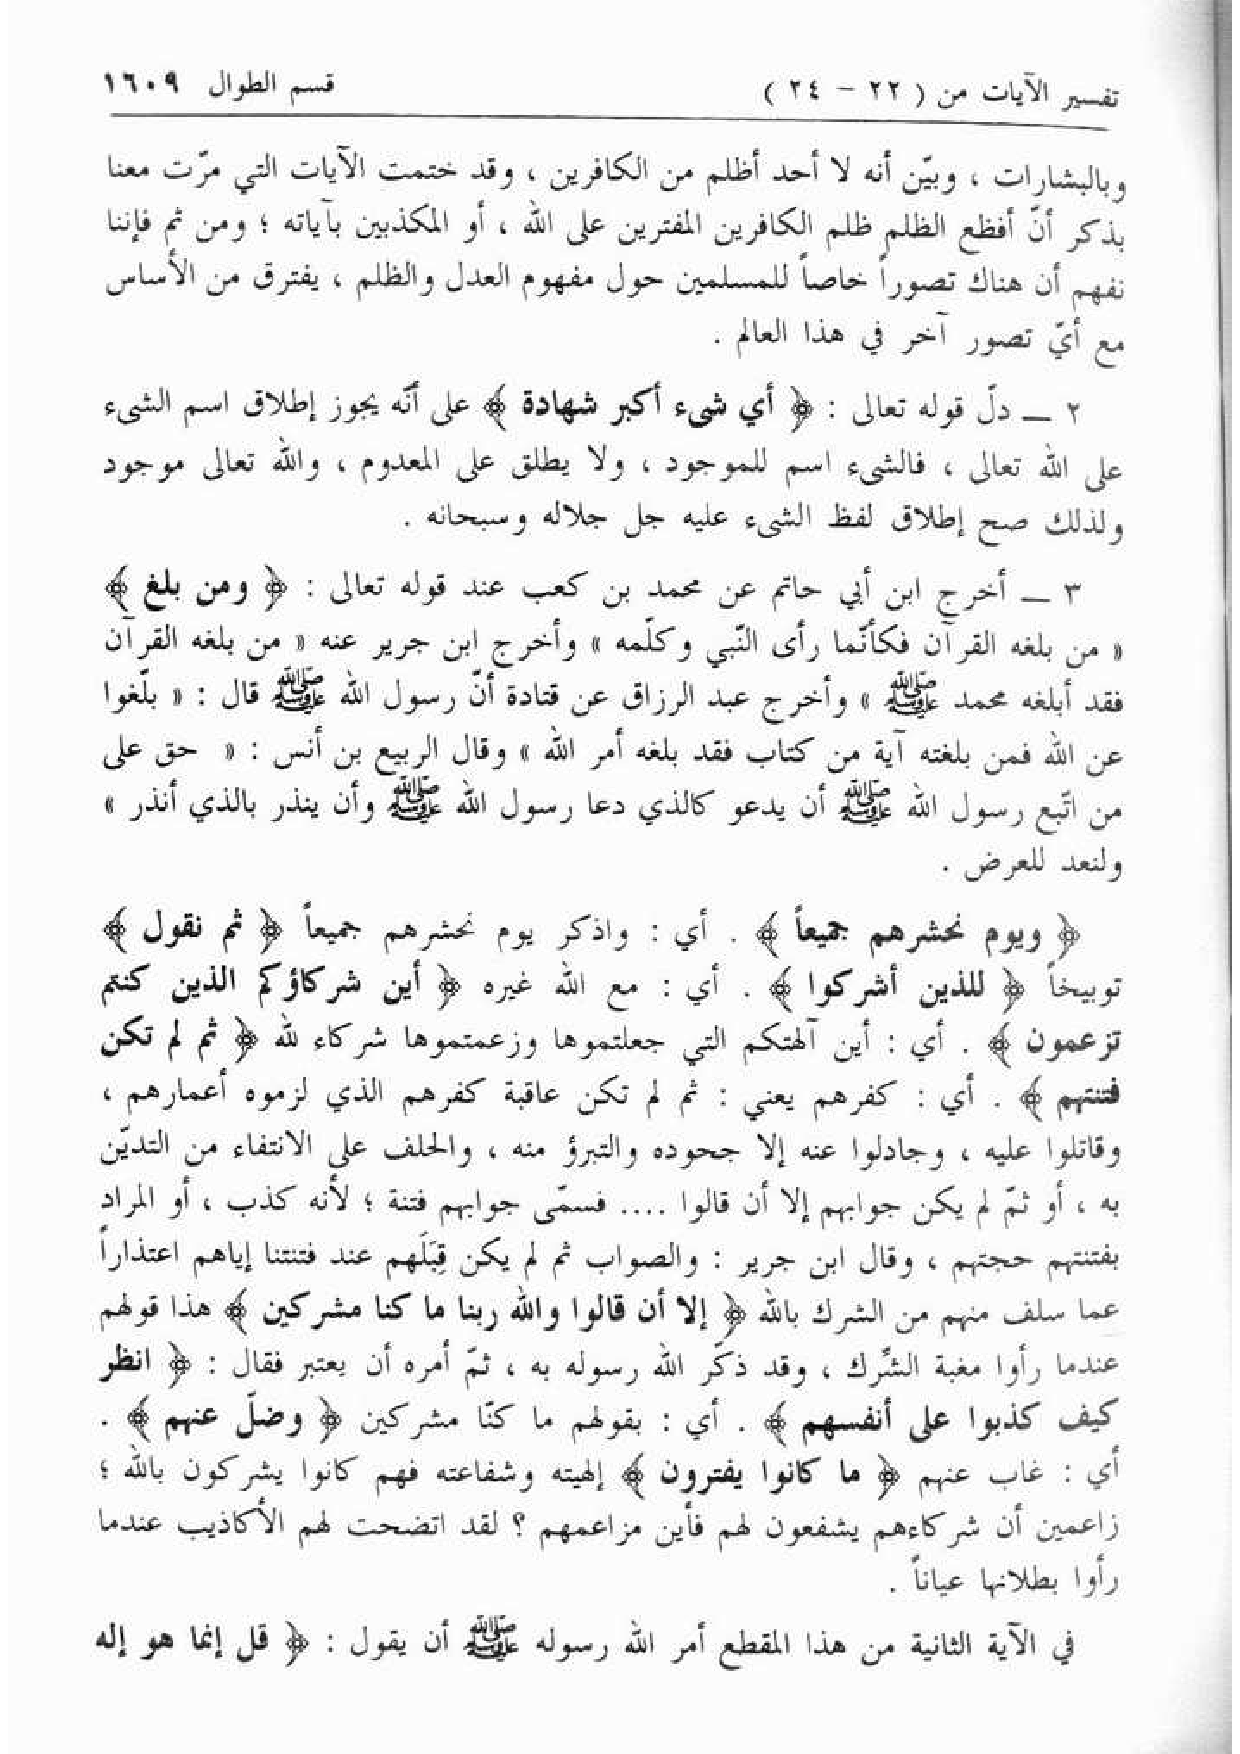 تفسير الآيات من ( ٢٢ - ٢٤ )
قسم الطوال ١٦٠٩
وبالبشارات ، وبيّن أنه لا أحد أظلم من الكافرين ، وقد ختمت الآيات التي مرّت معنا
بذكر أنّ أفظع الظلم ظلم الكافرين المفترين على الله ، أو المكذبين بآياته ؛ ومن ثم فإننا
نفهم أن هناك تصوراً خاصاً للمسلمين حول مفهوم العدل والظلم ، يفترق من الأساس
مع أيّ تصور آخر في هذا العالم .
٢ ــ دلّ قوله تعالى : ﴿ أي شىء أكبر شهادة ﴾ على أنّه يجوز إطلاق اسم الشىء
على الله تعالى ، فالشىء اسم للموجود ، ولا يطلق على المعدوم ، والله تعالى موجود
ولذلك صح إطلاق لفظ الشىء عليه جل جلاله وسبحانه .
٣ ــ أخرج ابن أبي حاتم عن محمد بن كعب عند قوله تعالى : ﴿ ومن بلغ ﴾
« من بلغه القرآن فكأنّما رأى النّبي وكلّمه » وأخرج ابن جرير عنه « من بلغه القرآن
فقد أبلغه محمد ﷺ » وأخرج عبد الرزاق عن قتادة أنّ رسول الله ﷺ قال : « بلّغوا
عن الله فمن بلغته آية من كتاب فقد بلغه أمر الله » وقال الربيع بن أنس : « حق على
من اتّبع رسول الله ﷺ أن يدعو كالذي دعا رسول الله ﷺ وأن ينذر بالذي أنذر »
ولنعد للعرض .
﴿ ويوم نحشرهم جميعاً ﴾ . أي : واذكر يوم نحشرهم جميعاً ﴿ ثم نقول ﴾
توبيخاً ﴿ للذين أشركوا ﴾ . أي : مع الله غيره ﴿ أين شركاؤكم الذين كنتم
تزعمون ﴾ . أي : أين آلهتكم التي جعلتموها وزعمتموها شركاء لله ﴿ ثم لم تكن
فتنتهم ﴾ . أي : كفرهم يعني : ثم لم تكن عاقبة كفرهم الذي لزموه أعمارهم ،
وقاتلوا عليه ، وجادلوا عنه إلا جحوده والتبرؤ منه ، والحلف على الانتفاء من التديّن
به ، أو ثمّ لم يكن جوابهم إلا أن قالوا .... فسمّى جوابهم فتنة ؛ لأنه كذب ، أو المراد
بفتنتهم حجتهم ، وقال ابن جرير : والصواب ثم لم يكن قِبَلَهم عند فتنتنا إياهم اعتذاراً
عما سلف منهم من الشرك بالله ﴿ إلا أن قالوا والله ربنا ما كنا مشركين ﴾ هذا قولهم
عندما رأوا مغبة الشّرك ، وقد ذكّر الله رسوله به ، ثمّ أمره أن يعتبر فقال : ﴿ انظر
كيف كذبوا على أنفسهم ﴾ . أي : بقولهم ما كنّا مشركين ﴿ وضلّ عنهم ﴾ .
أي : غاب عنهم ﴿ ما كانوا يفترون ﴾ إلهيته وشفاعته فهم كانوا يشركون بالله ؛
زاعمين أن شركاءهم يشفعون لهم فأين مزاعمهم ؟ لقد اتضحت لهم الأكاذيب عندما
رأوا بطلانها عياناً .
في الآية الثانية من هذا المقطع أمر الله رسوله ﷺ أن يقول : ﴿ قل إنما هو إله